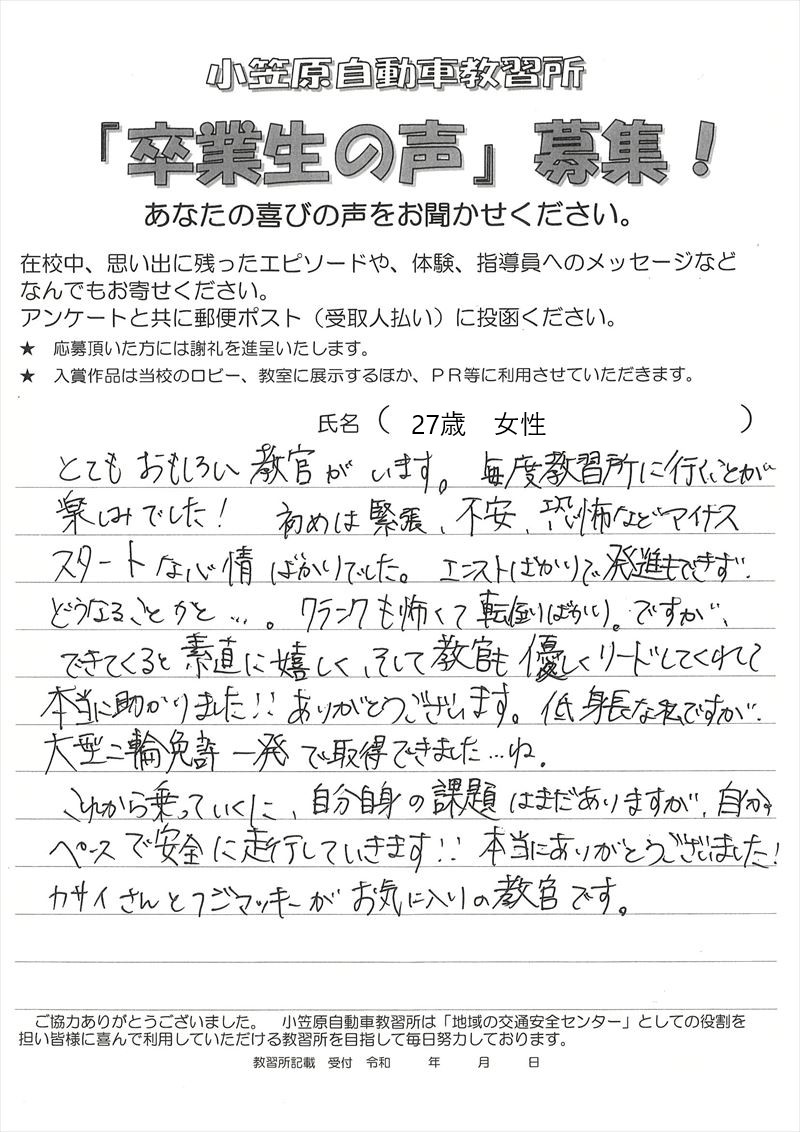 小笠原自動車教習所
「卒業生の声」募集！
あなたの喜びの声をお聞かせください。
在校中、思い出に残ったエピソードや、体験、指導員へのメッセージなど
なんでもお寄せください。
アンケートと共に郵便ポスト（受取人払い）に投函ください。
★　応募頂いた方には謝礼を進呈いたします。
★　入賞作品は当校のロビー、教室に展示するほか、ＰＲ等に利用させていただきます。
氏名（　27歳　女性　）
とてもおもしろい教官がいます。毎度教習所に行くことが
楽しみでした！　初めは緊張、不安、恐怖などマイナス
スタートな心情ばかりでした。エンストばかりで発進もできず、
どうなることかと…。クランクも怖くて転倒ばかり。ですが、
できてくると素直に嬉しく、そして教官も優しくリードしてくれて
本当に助かりました!!ありがとうございます。低身長な私ですが、
大型二輪免許一発で取得できました…ね。
これから乗っていくに、自分自身の課題はまだありますが、自分
ペースで安全に走行していきます!!本当にありがとうございました!
カサイさんとフジマッキーがお気に入りの教官です。
ご協力ありがとうございました。　小笠原自動車教習所は「地域の交通安全センター」としての役割を
担い皆様に喜んで利用していただける教習所を目指して毎日努力しております。
教習所記載　受付　令和　　年　　月　　日